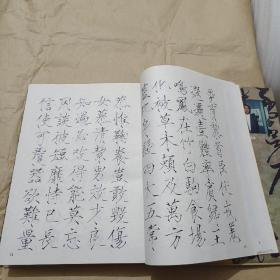 愛育黎首臣伏戎羌
遐邇壹體率賓歸王
鳴鳳在竹白駒食場
化被草木賴及萬方
蓋此身髮四大五常
恭惟鞠養豈敢毀傷
女慕貞潔男效才良
知過必改得能莫忘
罔談彼短靡恃己長
信使可覆器欲難量